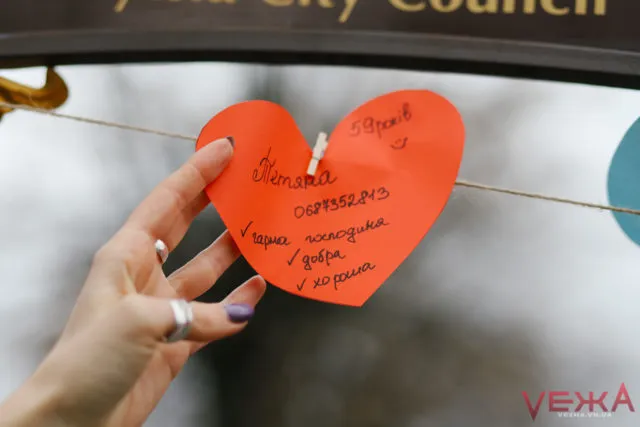 City Council
59 років
Тетяна
0687352813
✓ гарна господиня
✓ добра
✓ хороша
VЕЖА
VEZHA.VN.UA